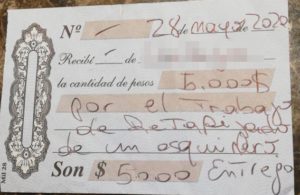 Nº 1 28 de mayo de 2020
Recibí de
la cantidad de pesos 5.000$
por el Trabajo
de Retapizado
de un esquinero
Son $ 5000 Entrego